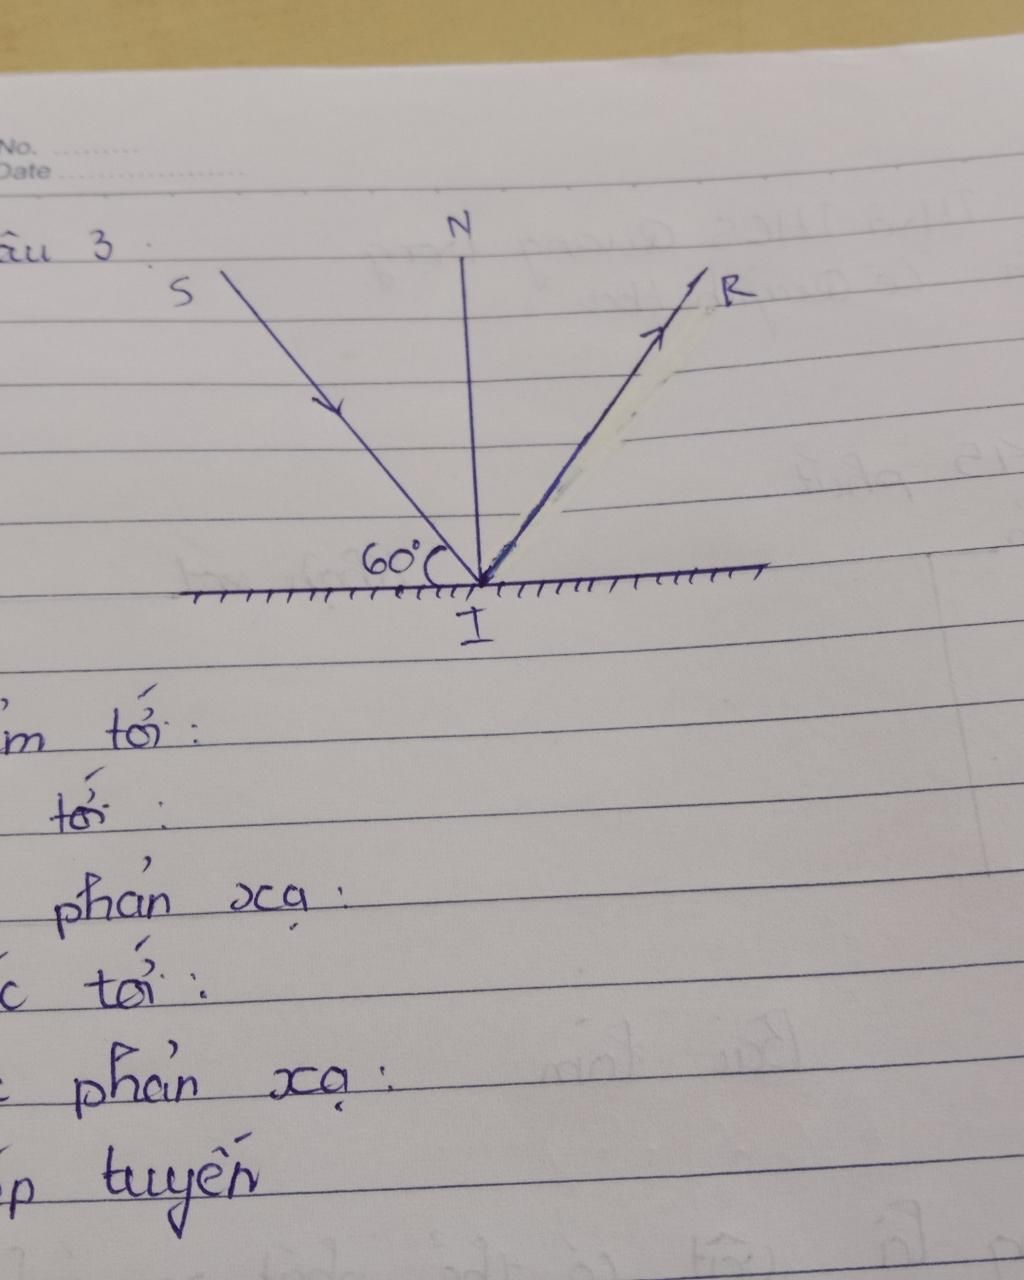 No. ..........
Date ....................
âu 3 :
N
S
R
60°
I
ểm tới :
tới :
phản xạ :
c tới :
phản xạ :
áp tuyến